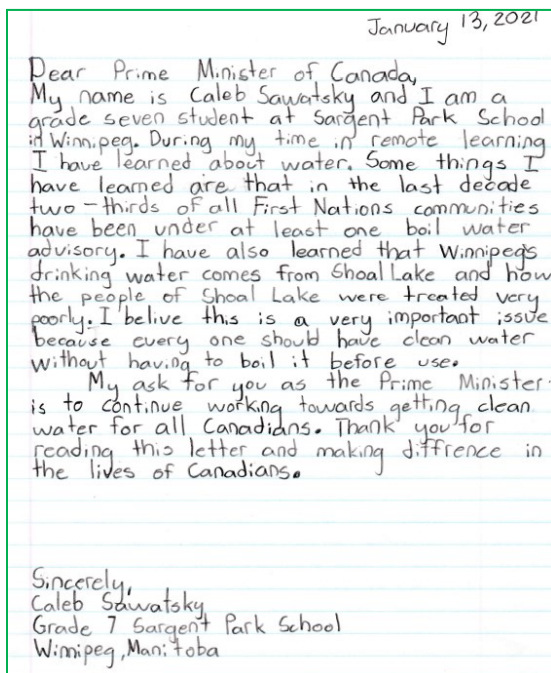 January 13, 2021
Dear Prime Minister of Canada,
My name is Caleb Sawatsky and I am a
grade seven student at Sargent Park School
in Winnipeg. During my time in remote learning
I have learned about water. Some things I
have learned are that in the last decade
two-thirds of all First Nations communities
have been under at least one boil water
advisory. I have also learned that Winnipeg's
drinking water comes from Shoal Lake and how
the people of Shoal Lake were treated very
poorly. I belive this is a very important issue
because every one should have clean water
without having to boil it before use.
My ask for you as the Prime Minister
is to continue working towards getting clean
water for all Canadians. Thank you for
reading this letter and making diffrence in
the lives of Canadians.
Sincerely,
Caleb Sawatsky
Grade 7 Sargent Park School
Winnipeg, Manitoba